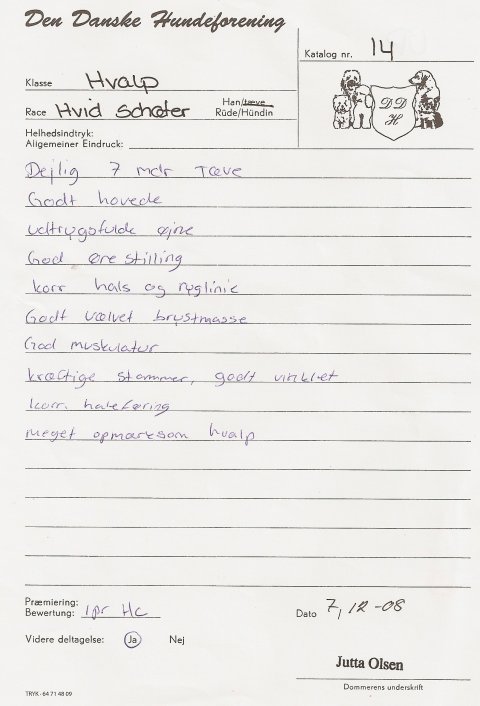 Den Danske Hundeforening
Katalog nr. 14
Klasse Hvalp
Race Hvid Schæfer
Han/tæve
Rüde/Hündin
DD
H
Helhedsindtryk:
Allgemeiner Eindruck:
Dejlig 7 mdr Tæve
Godt hovede
udtrygsfulde øjne
God øre stilling
korr hals og ryglinie
Godt vælvet brystmasse
God muskulatur
kræftige stammer, godt vinklet
korr. haleføring
meget opmærksom hvalp
Præmiering:
Bewertung: 1pr Hc
Dato 7, 12 -08
Videre deltagelse: Ja Nej
Jutta Olsen
Dommerens underskrift
TRYK - 64 71 48 09